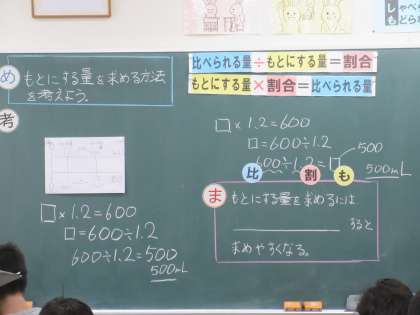 め
もとにする量を求める方法
を考えよう。
考
□×1.2=600
□=600÷1.2
600÷1.2=500
500mL
比べられる量÷もとにする量=割合
もとにする量×割合=比べられる量
□×1.2=600
□=600÷1.2
500
600÷1.2=□
500mL
比 割 も
ま
もとにする量を求めるには
すると
求めやすくなる。